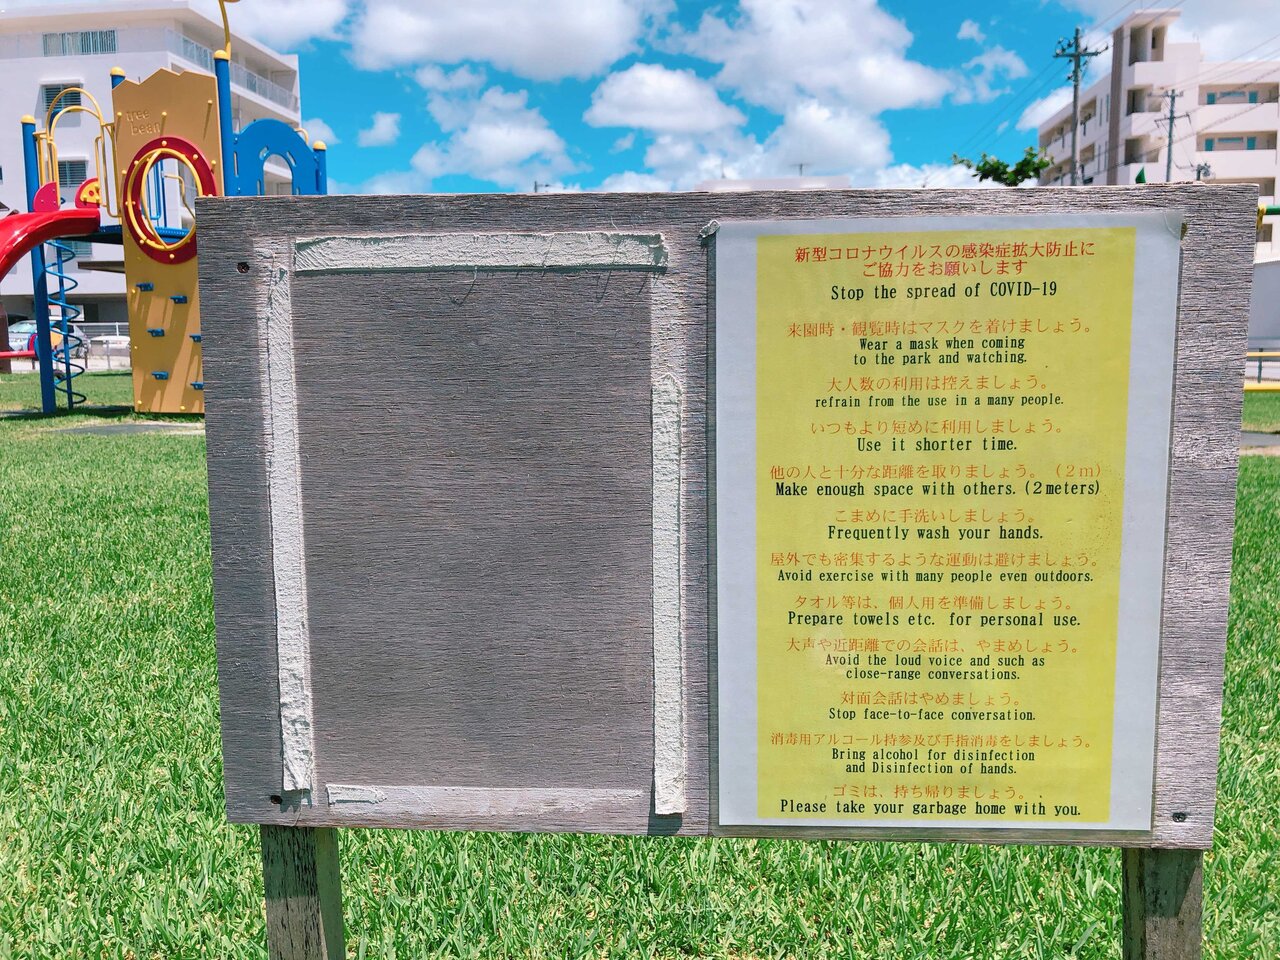 tree
bean
新型コロナウイルスの感染症拡大防止に
ご協力をお願いします
Stop the spread of COVID-19
来園時・観覧時はマスクを着けましょう。
Wear a mask when coming
to the park and watching.
大人数の利用は控えましょう。
refrain from the use in a many people.
いつもより短めに利用しましょう。
Use it shorter time.
他の人と十分な距離を取りましょう。（２ｍ）
Make enough space with others. (2meters)
こまめに手洗いしましょう。
Frequently wash your hands.
屋外でも密集するような運動は避けましょう。
Avoid exercise with many people even outdoors.
タオル等は、個人用を準備しましょう。
Prepare towels etc. for personal use.
大声や近距離での会話は、やまめしょう。
Avoid the loud voice and such as
close-range conversations.
対面会話はやめましょう。
Stop face-to-face conversation.
消毒用アルコール持参及び手指消毒をしましょう。
Bring alcohol for disinfection
and Disinfection of hands.
ゴミは、持ち帰りましょう。
Please take your garbage home with you.